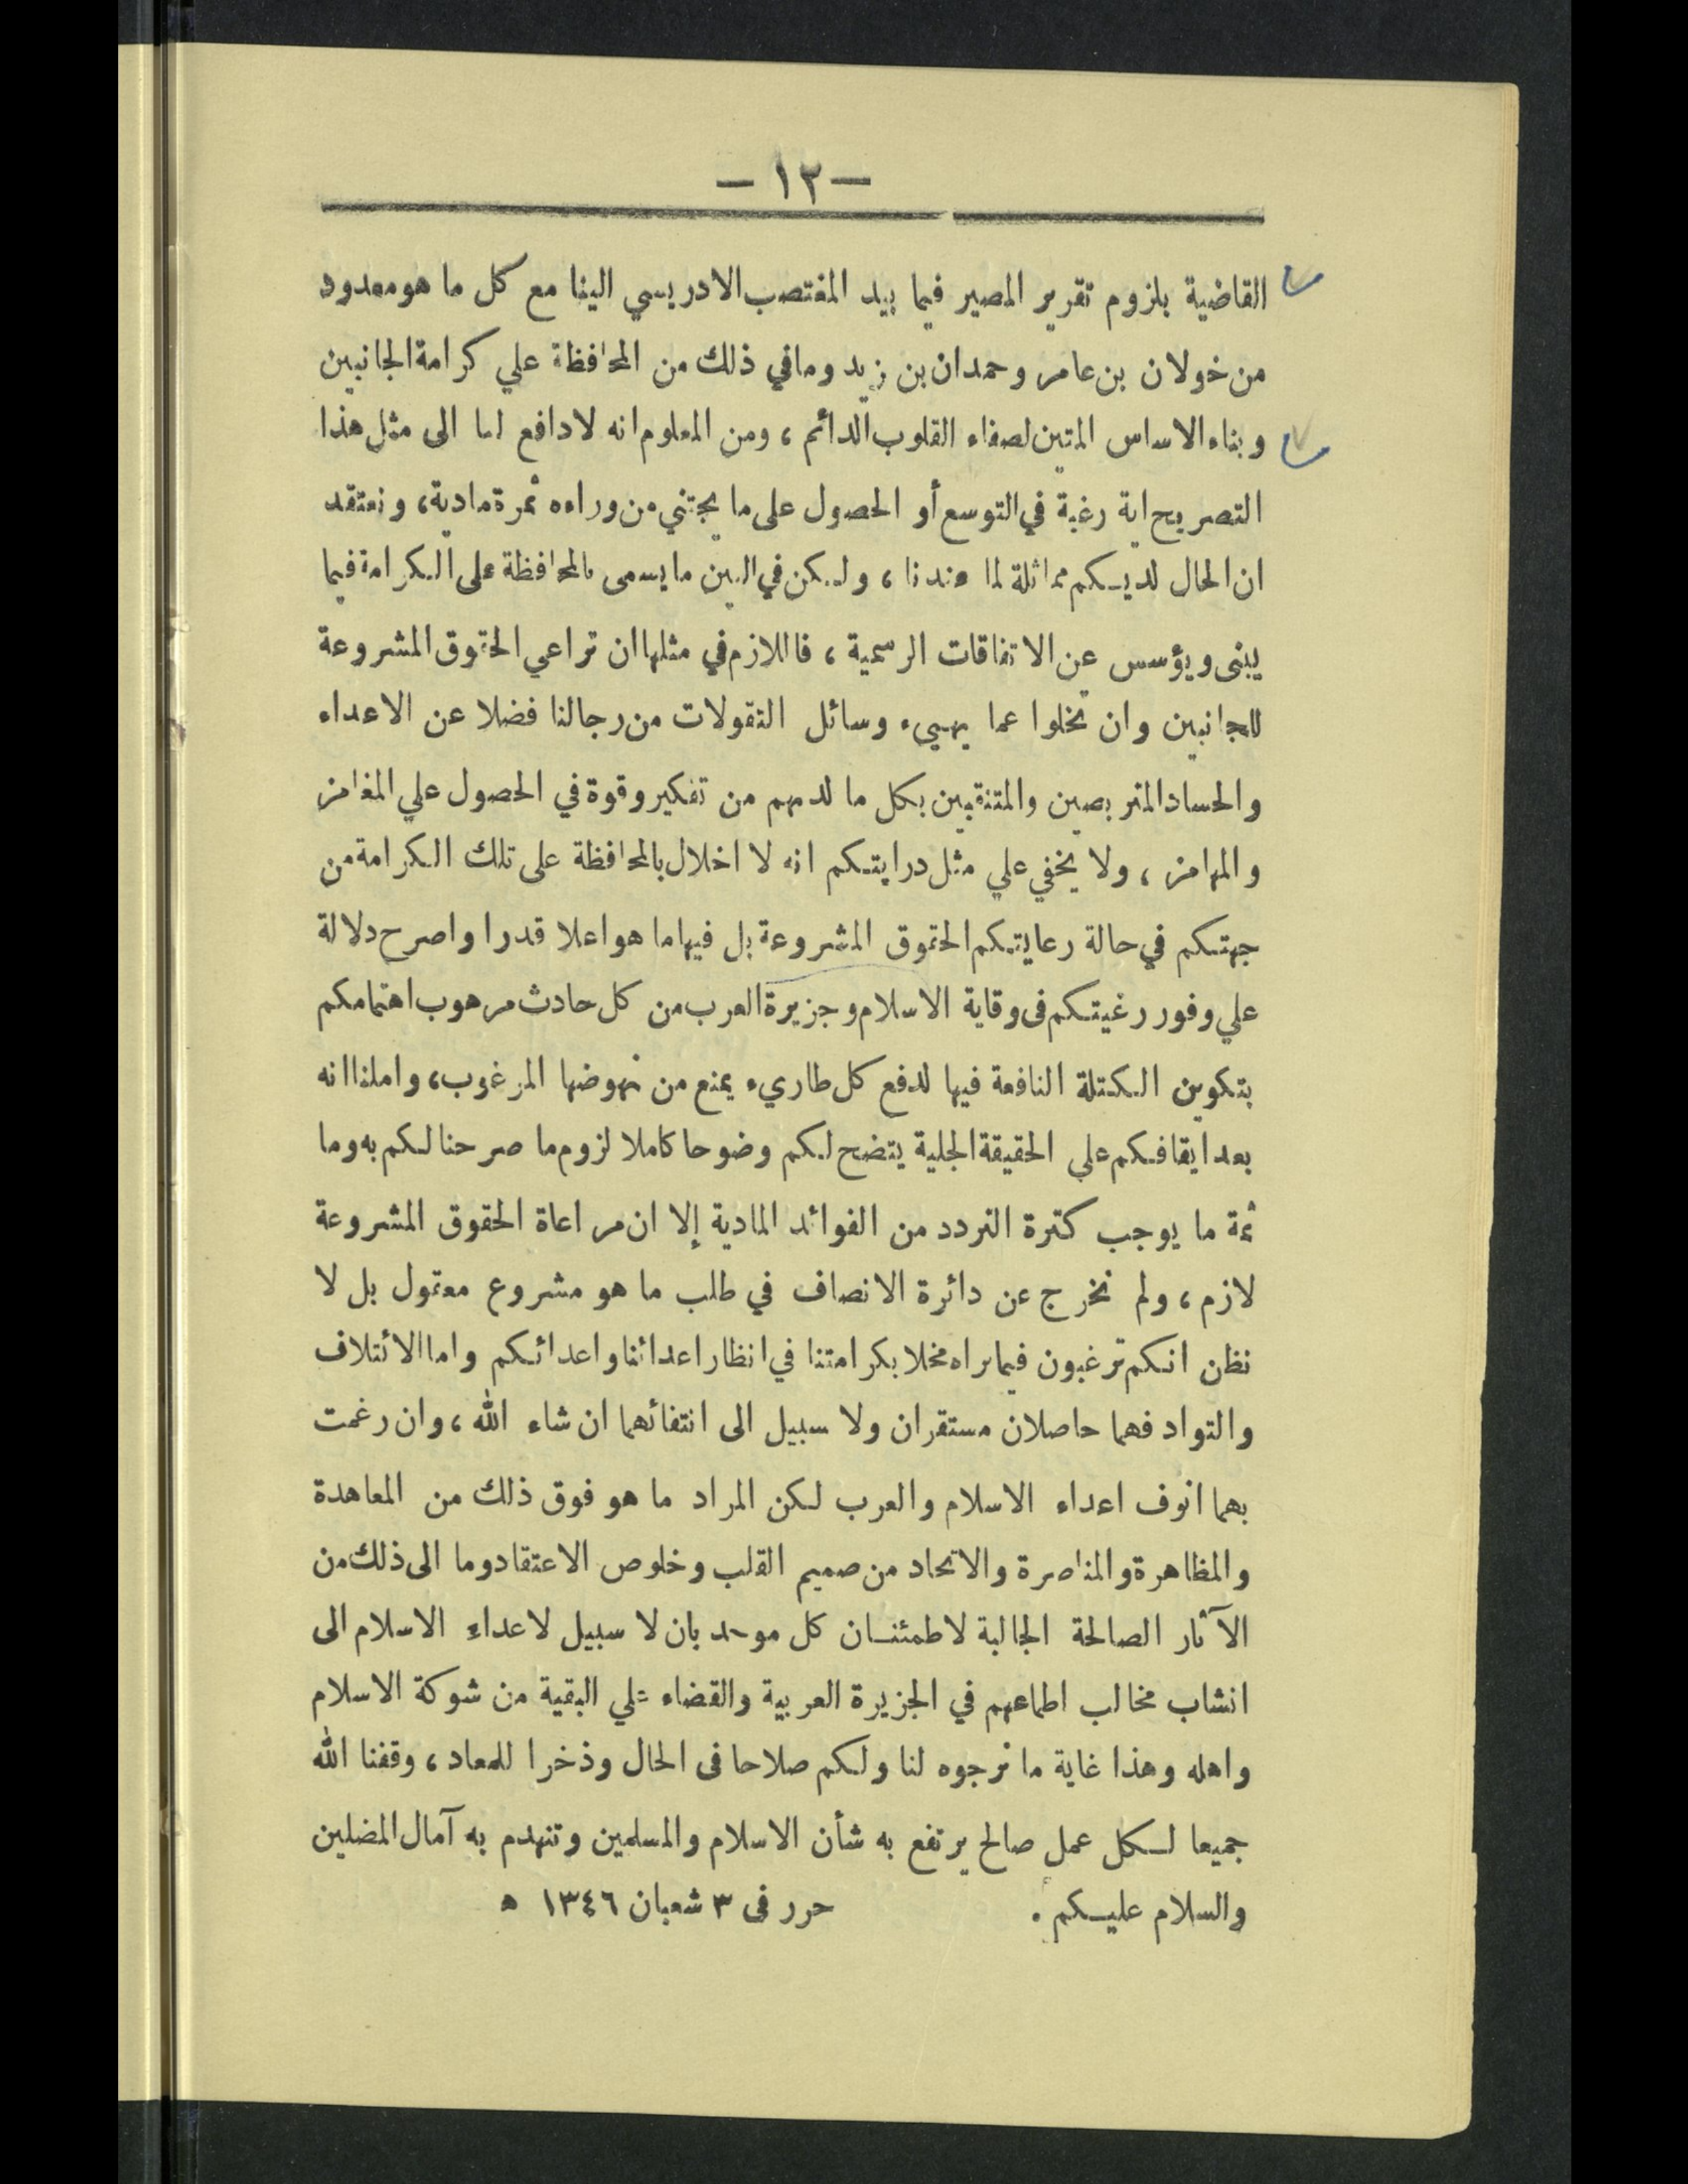 — ١٢ —
القاضية بلزوم تقرير المصير فيما بيد المغتصب الادريسي الينا مع كل ما هو معدود
من خولان بن عامر وحمدان بن زيد وما في ذلك من المحافظة علي كرامة الجانبين
وبناء الاساس المتين لصفاء القلوب الدائم ، ومن المعلوم انه لا دافع لنا الى مثل هذا
التصريح اية رغبة في التوسع أو الحصول على ما يجتني من وراءه ثمرة مادية ، ونعتقد
ان الحال لديكم مماثلة لما عندنا ، ولكن في البين ما يسمى بالمحافظة على الكرامة فيما
يبنى ويؤسس عن الاتفاقات الرسمية ، فاللازم في مثلها ان تراعي الحقوق المشروعة
للجانبين وان تخلوا عما يهييء وسائل التقولات من رجالنا فضلا عن الاعداء
والحساد المتربصين والمتنقبين بكل ما لديهم من تفكير وقوة في الحصول علي المغامز
والمهامز ، ولا يخفي علي مثل درايتكم انه لا اخلال بالمحافظة على تلك الكرامة من
جهتكم في حالة رعايتكم الحقوق المشروعة بل فيها ما هو اعلا قدرا واصرح دلالة
علي وفور رغبتكم فى وقاية الاسلام وجزيرة العرب من كل حادث مرهوب اهتمامكم
بتكوين الكتلة النافعة فيها لدفع كل طاريء يمنع من نهوضها المرغوب ، واملنا انه
بعد ايقافكم علي الحقيقة الجلية يتضح لكم وضوحا كاملا لزوم ما صرحنا لكم به وما
ثمة ما يوجب كثرة التردد من الفوائد المادية إلا ان مراعاة الحقوق المشروعة
لازم ، ولم نخرج عن دائرة الانصاف في طلب ما هو مشروع معقول بل لا
نظن انكم ترغبون فيما نراه مخلا بكرامتنا في انظار اعدائنا واعدائكم واما الائتلاف
والتواد فهما حاصلان مستقران ولا سبيل الى انتفائهما ان شاء الله ، وان رغمت
بهما انوف اعداء الاسلام والعرب لكن المراد ما هو فوق ذلك من المعاهدة
والمظاهرة والمناصرة والاتحاد من صميم القلب وخلوص الاعتقاد وما الى ذلك من
الآثار الصالحة الجالبة لاطمئنان كل موحد بان لا سبيل لاعداء الاسلام الى
انشاب مخالب اطماعهم في الجزيرة العربية والقضاء علي البقية من شوكة الاسلام
واهله وهذا غاية ما نرجوه لنا ولكم صلاحا فى الحال وذخرا للمعاد ، وقفنا الله
جميعا لكل عمل صالح يرتفع به شأن الاسلام والمسلمين وتنهدم به آمال المضلين
والسلام عليكم . حرر فى ٣ شعبان ١٣٤٦ ه